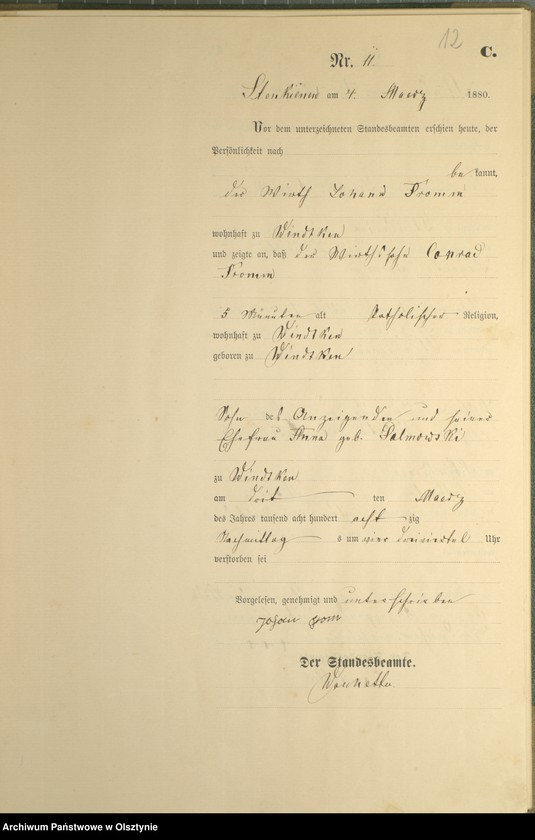 12
C.
Nr. 11.
Stenkienen am 4. Maerz 1880.
Vor dem unterzeichneten Standesbeamten erschien heute, der
Persönlichkeit nach
bekannt,
der Wirth Johann Fromm
wohnhaft zu Windtken
und zeigte an, daß der Wirthssohn Conrad
Fromm
5 alt katholischer Religion,
wohnhaft zu Windtken
geboren zu Windtken
Sohn des Anzeigenden und seiner
Ehefrau Anna geb. Salmowski
zu Windtken
am dritten Maerz
des Jahres tausend acht hundert achtzig
Nachmittags um vier dreiviertel Uhr
verstorben sei
Vorgelesen, genehmigt und unterschrieben
Der Standesbeamte.
Archiwum Państwowe w Olsztynie